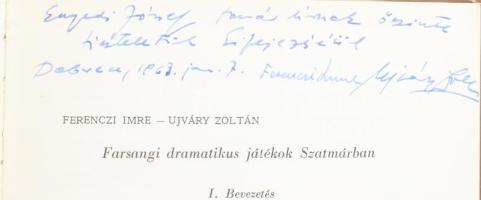 Engedi József tanár úrnak őszinte
tisztelettel kifejezéséül
Debrecen, 1963. jan. 7. Ferenczi Imre Ujváry Zoltán
FERENCZI IMRE — UJVÁRY ZOLTÁN
Farsangi dramatikus játékok Szatmárban
I. Bevezetés